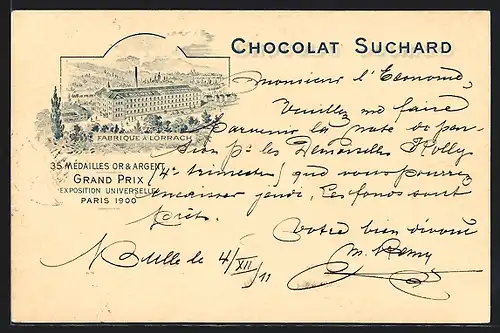 CHOCOLAT SUCHARD
FABRIQUE À LÖRRACH
35 MÉDAILLES OR & ARGENT
GRAND PRIX
EXPOSITION UNIVERSELLE
PARIS 1900
Monsieur l'Econome,
Veuillez me faire
parvenir la note de pen-
sion pr les Demoiselles Kolly
(4e trimestre) que vous pourrez
encaisser jeudi. Les fonds sont
prêts.
Votre bien dévoué
Bulle le 4/XII/11